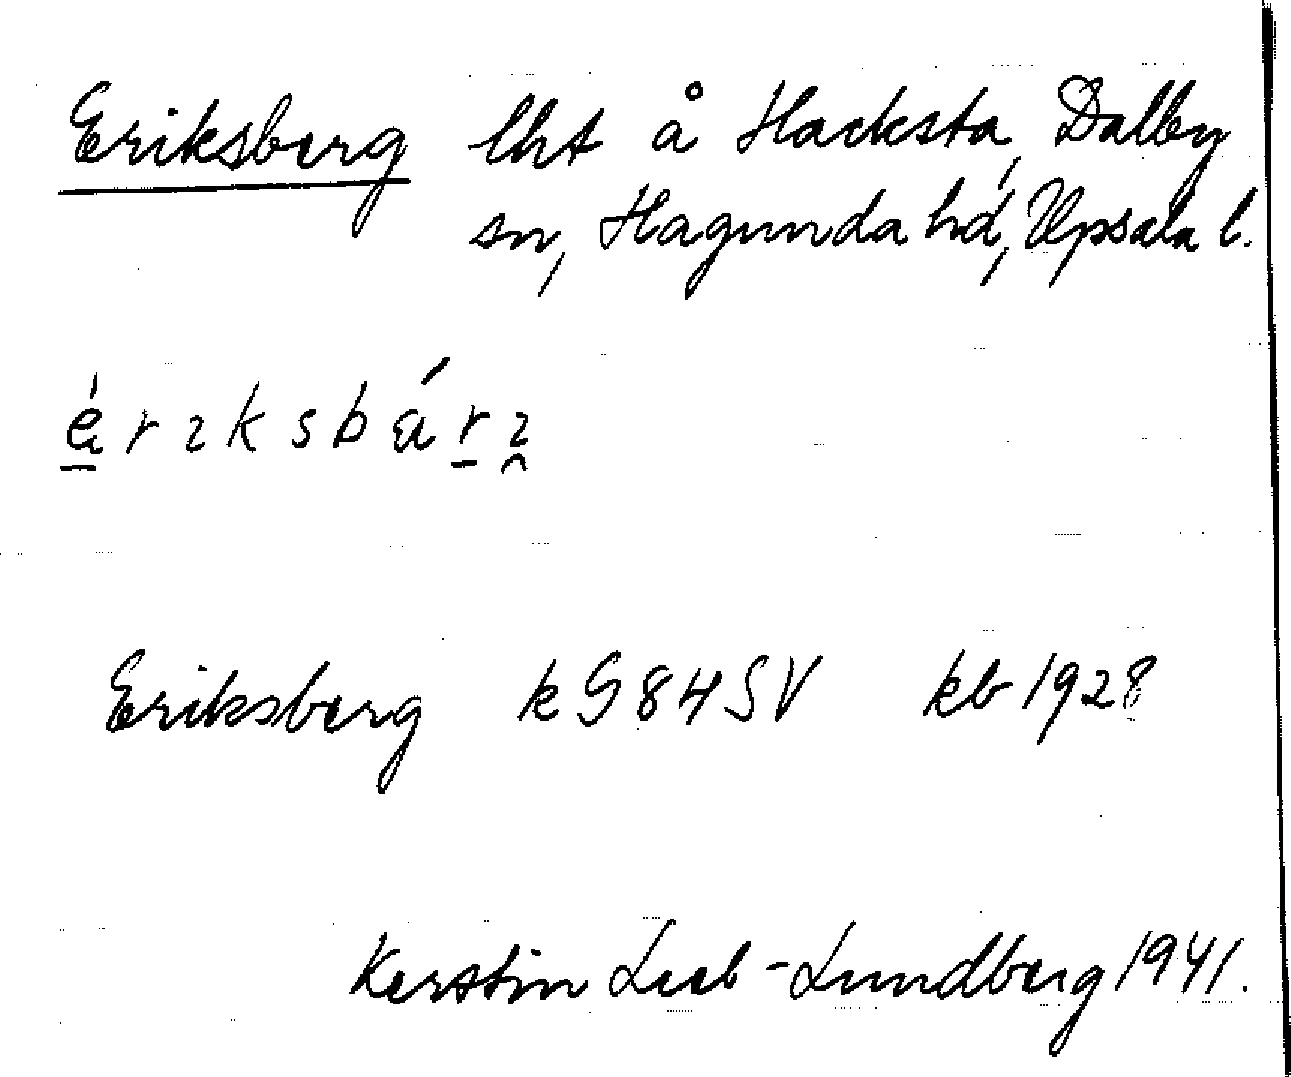 Eriksberg lht å Hacksta, Dalby
sn, Hagunda hd, Upsala l.
Eriksberg k G 84 SV kb 1928
Kerstin Leeb-Lundberg 1941.